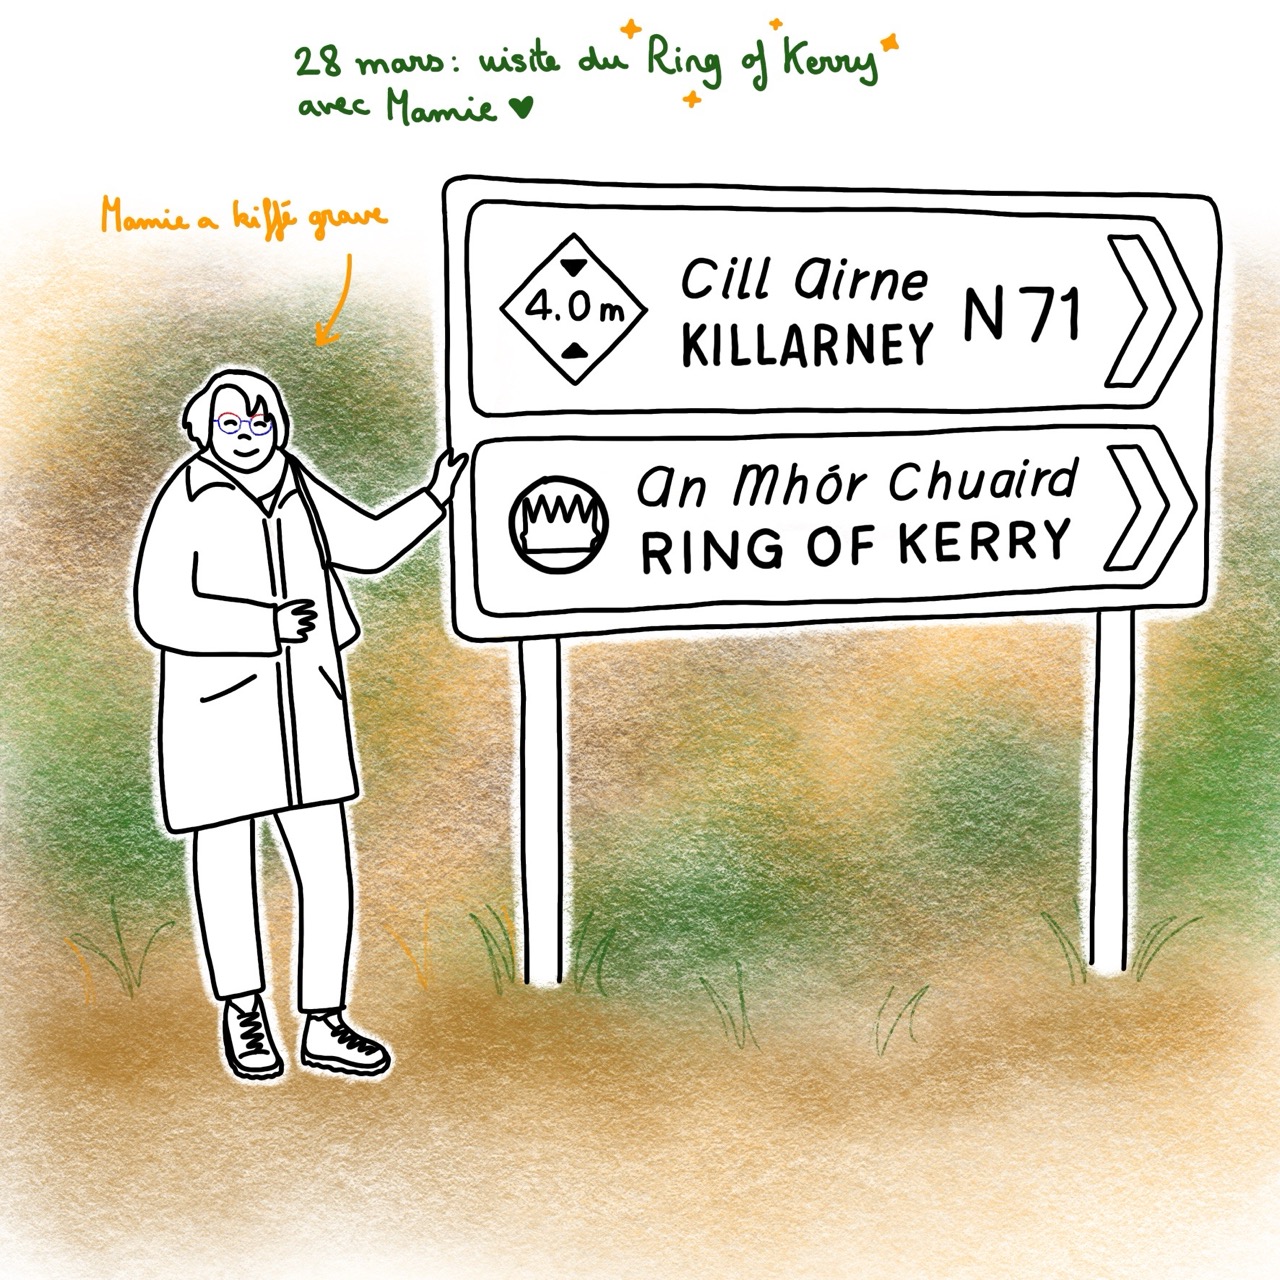 28 mars : visite du Ring of Kerry
avec Mamie ♥
Mamie a kiffé grave
4.0 m
Cill Airne
KILLARNEY
N71
An Mhór Chuaird
RING OF KERRY